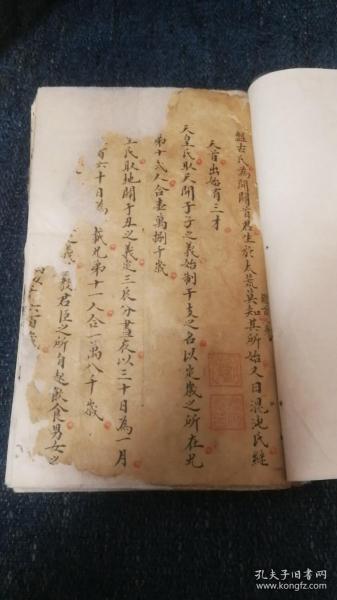 盤古氏為開闢首君生於太荒莫知其所始又曰混沌氏繼
天首出始有三才
天皇氏取天開于子之義始制干支之名以定歲之所在兄
弟十弍人合壹萬捌千歲
皇氏取地開于丑之義定三辰分晝夜以三十日為一月
百六十日為 載兄弟十一人合一萬八千歲
之義 教君臣之所自起飲食男女之
孔夫子旧书网
www.kongfz.com